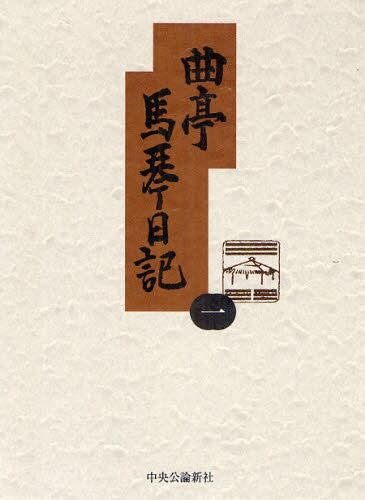 曲亭
馬琴日記
一
中央公論新社